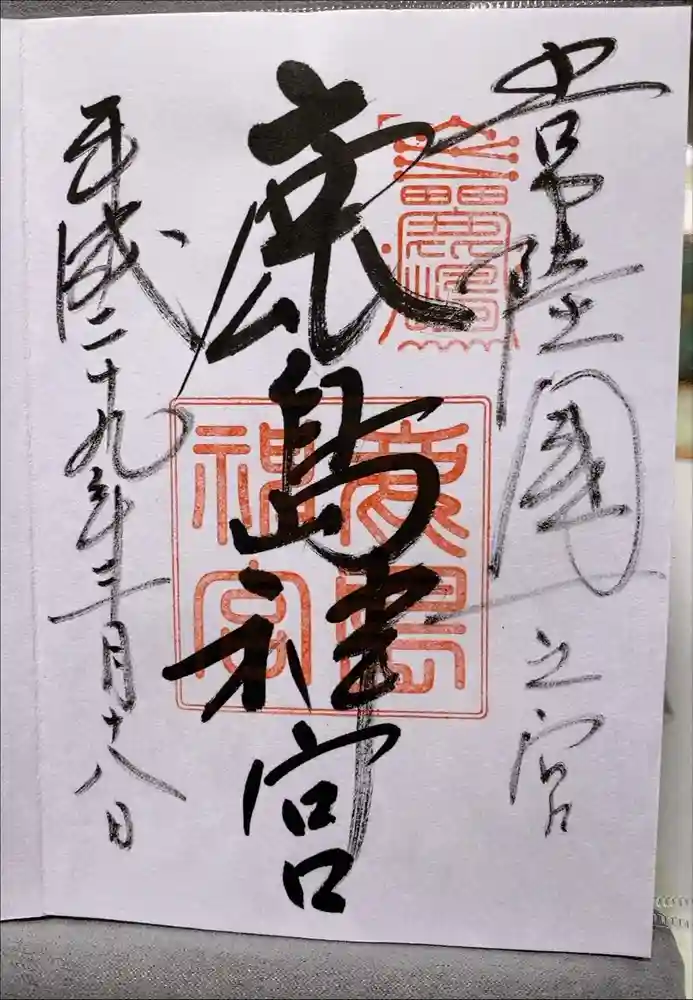 常陸国一之宮
鹿島神宮
平成二十九年三月十八日
鹿島
神宮